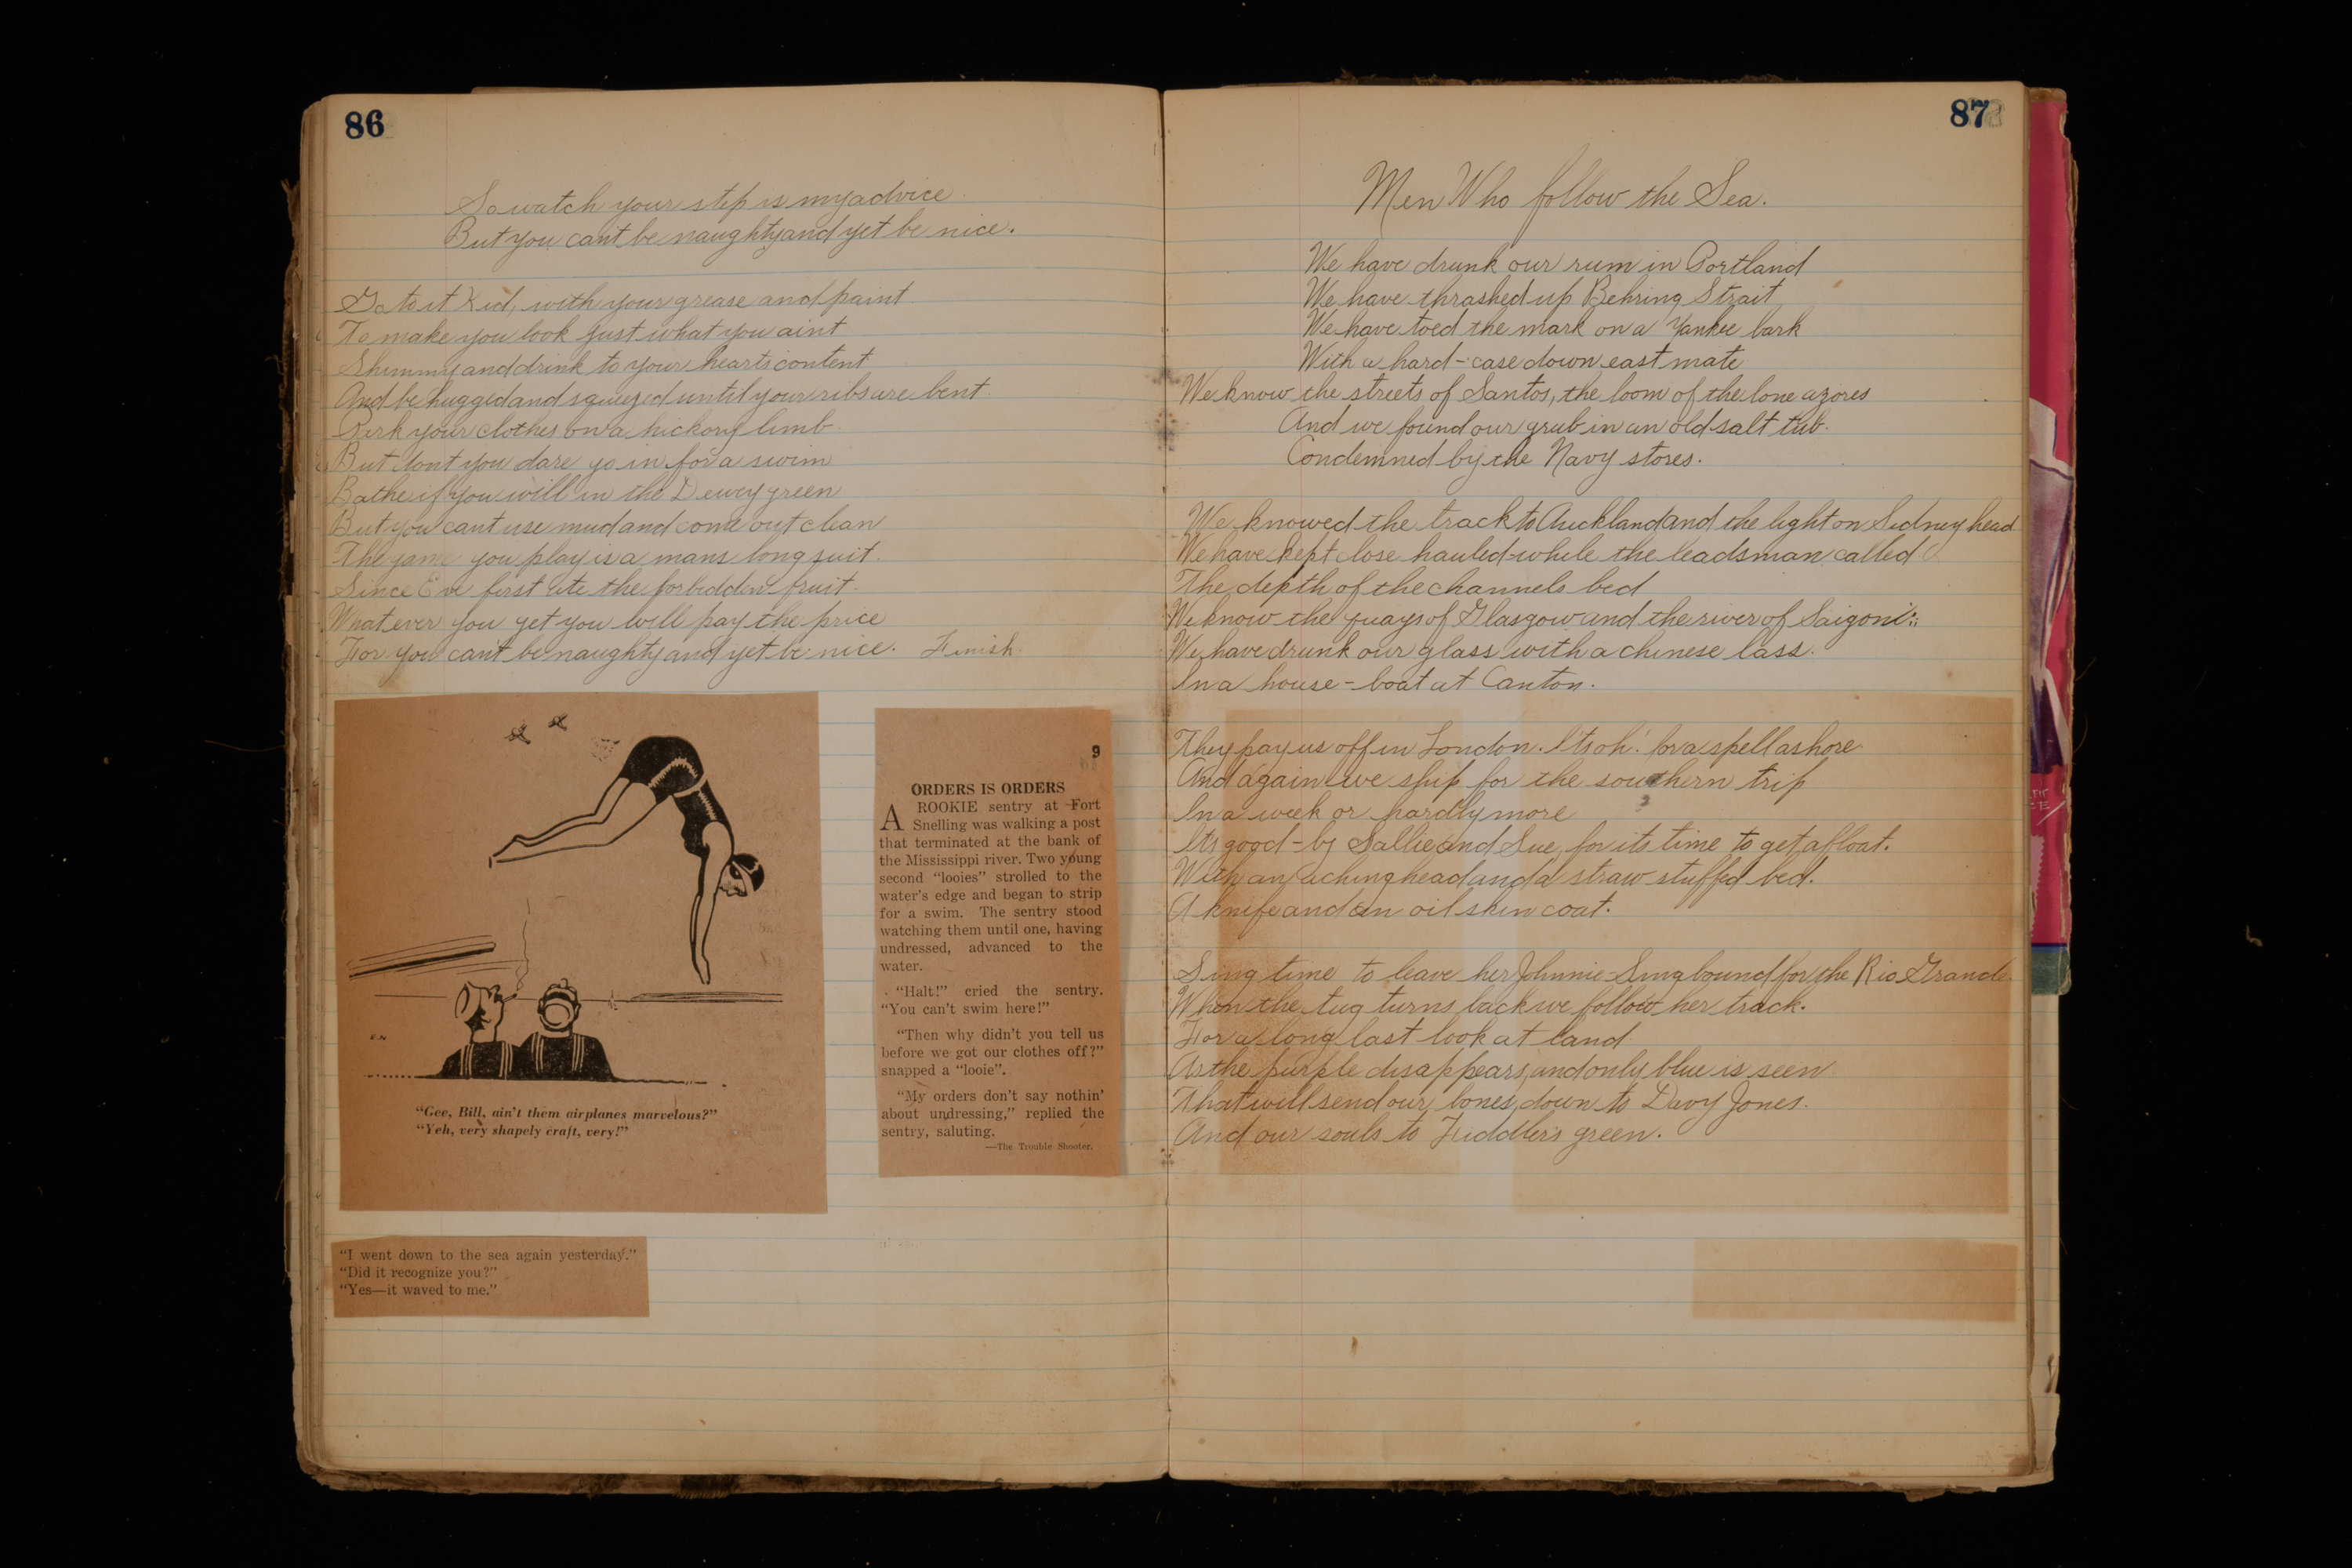 86
So watch your step is my advice.
But you cant be naughty and yet be nice.
Go to it Kid, with your grease and paint
To make you look just what you aint
Shimmy and drink to your hearts content
And be hugged and squeezed until your ribs are bent.
Perk your clothes on a hickory limb
But dont you dare go in for a swim
Bathe if you will in the Dewey green
But you cant use mud and come out clean
The game you play is a mans long suit.
Since Eve first ate the forbidden fruit.
What ever you get you will pay the price
For you can't be naughty and yet be nice. Finish.
"Gee, Bill, ain't them airplanes marvelous?"
"Yeh, very shapely craft, very!"
"I went down to the sea again yesterday."
"Did it recognize you?"
"Yes—it waved to me."
9
ORDERS IS ORDERS
A ROOKIE sentry at Fort
Snelling was walking a post
that terminated at the bank of
the Mississippi river. Two young
second "looies" strolled to the
water's edge and began to strip
for a swim. The sentry stood
watching them until one, having
undressed, advanced to the
water.
"Halt!" cried the sentry.
"You can't swim here!"
"Then why didn't you tell us
before we got our clothes off?"
snapped a "looie".
"My orders don't say nothin'
about undressing," replied the
sentry, saluting.
—The Trouble Shooter.
87
Men Who follow the Sea.
We have drunk our rum in Portland
We have thrashed up Behring Strait
We have toed the mark on a Yankee bark
With a hard-case down east mate
We know the streets of Santos, the loom of the lone azores
And we found our grub in an old salt tub.
Condemned by the Navy stores.
We knowed the track to Auckland and the light on Sidney head
We have kept close hauled while the leadsman called
The depth of the channels bed
We know the quays of Glasgow and the river of Saigon
We have drunk our glass with a chinese lass.
In a house-boat at Canton.
They pay us off in London. Its oh! for a spell ashore
And again we ship for the southern trip
In a week or hardly more
Its good-by Sallie and Sue, for its time to get afloat.
With an aching head and a straw stuffed bed.
A knife and an oil skin coat.
Sing time to leave her Johnnie Sing bound for the Rio Grande
When the tug turns back we follow her track.
For a long last look at land
As the purple disappears, and only blue is seen
That will send our bones down to Davy Jones.
And our souls to Fiddlers green.